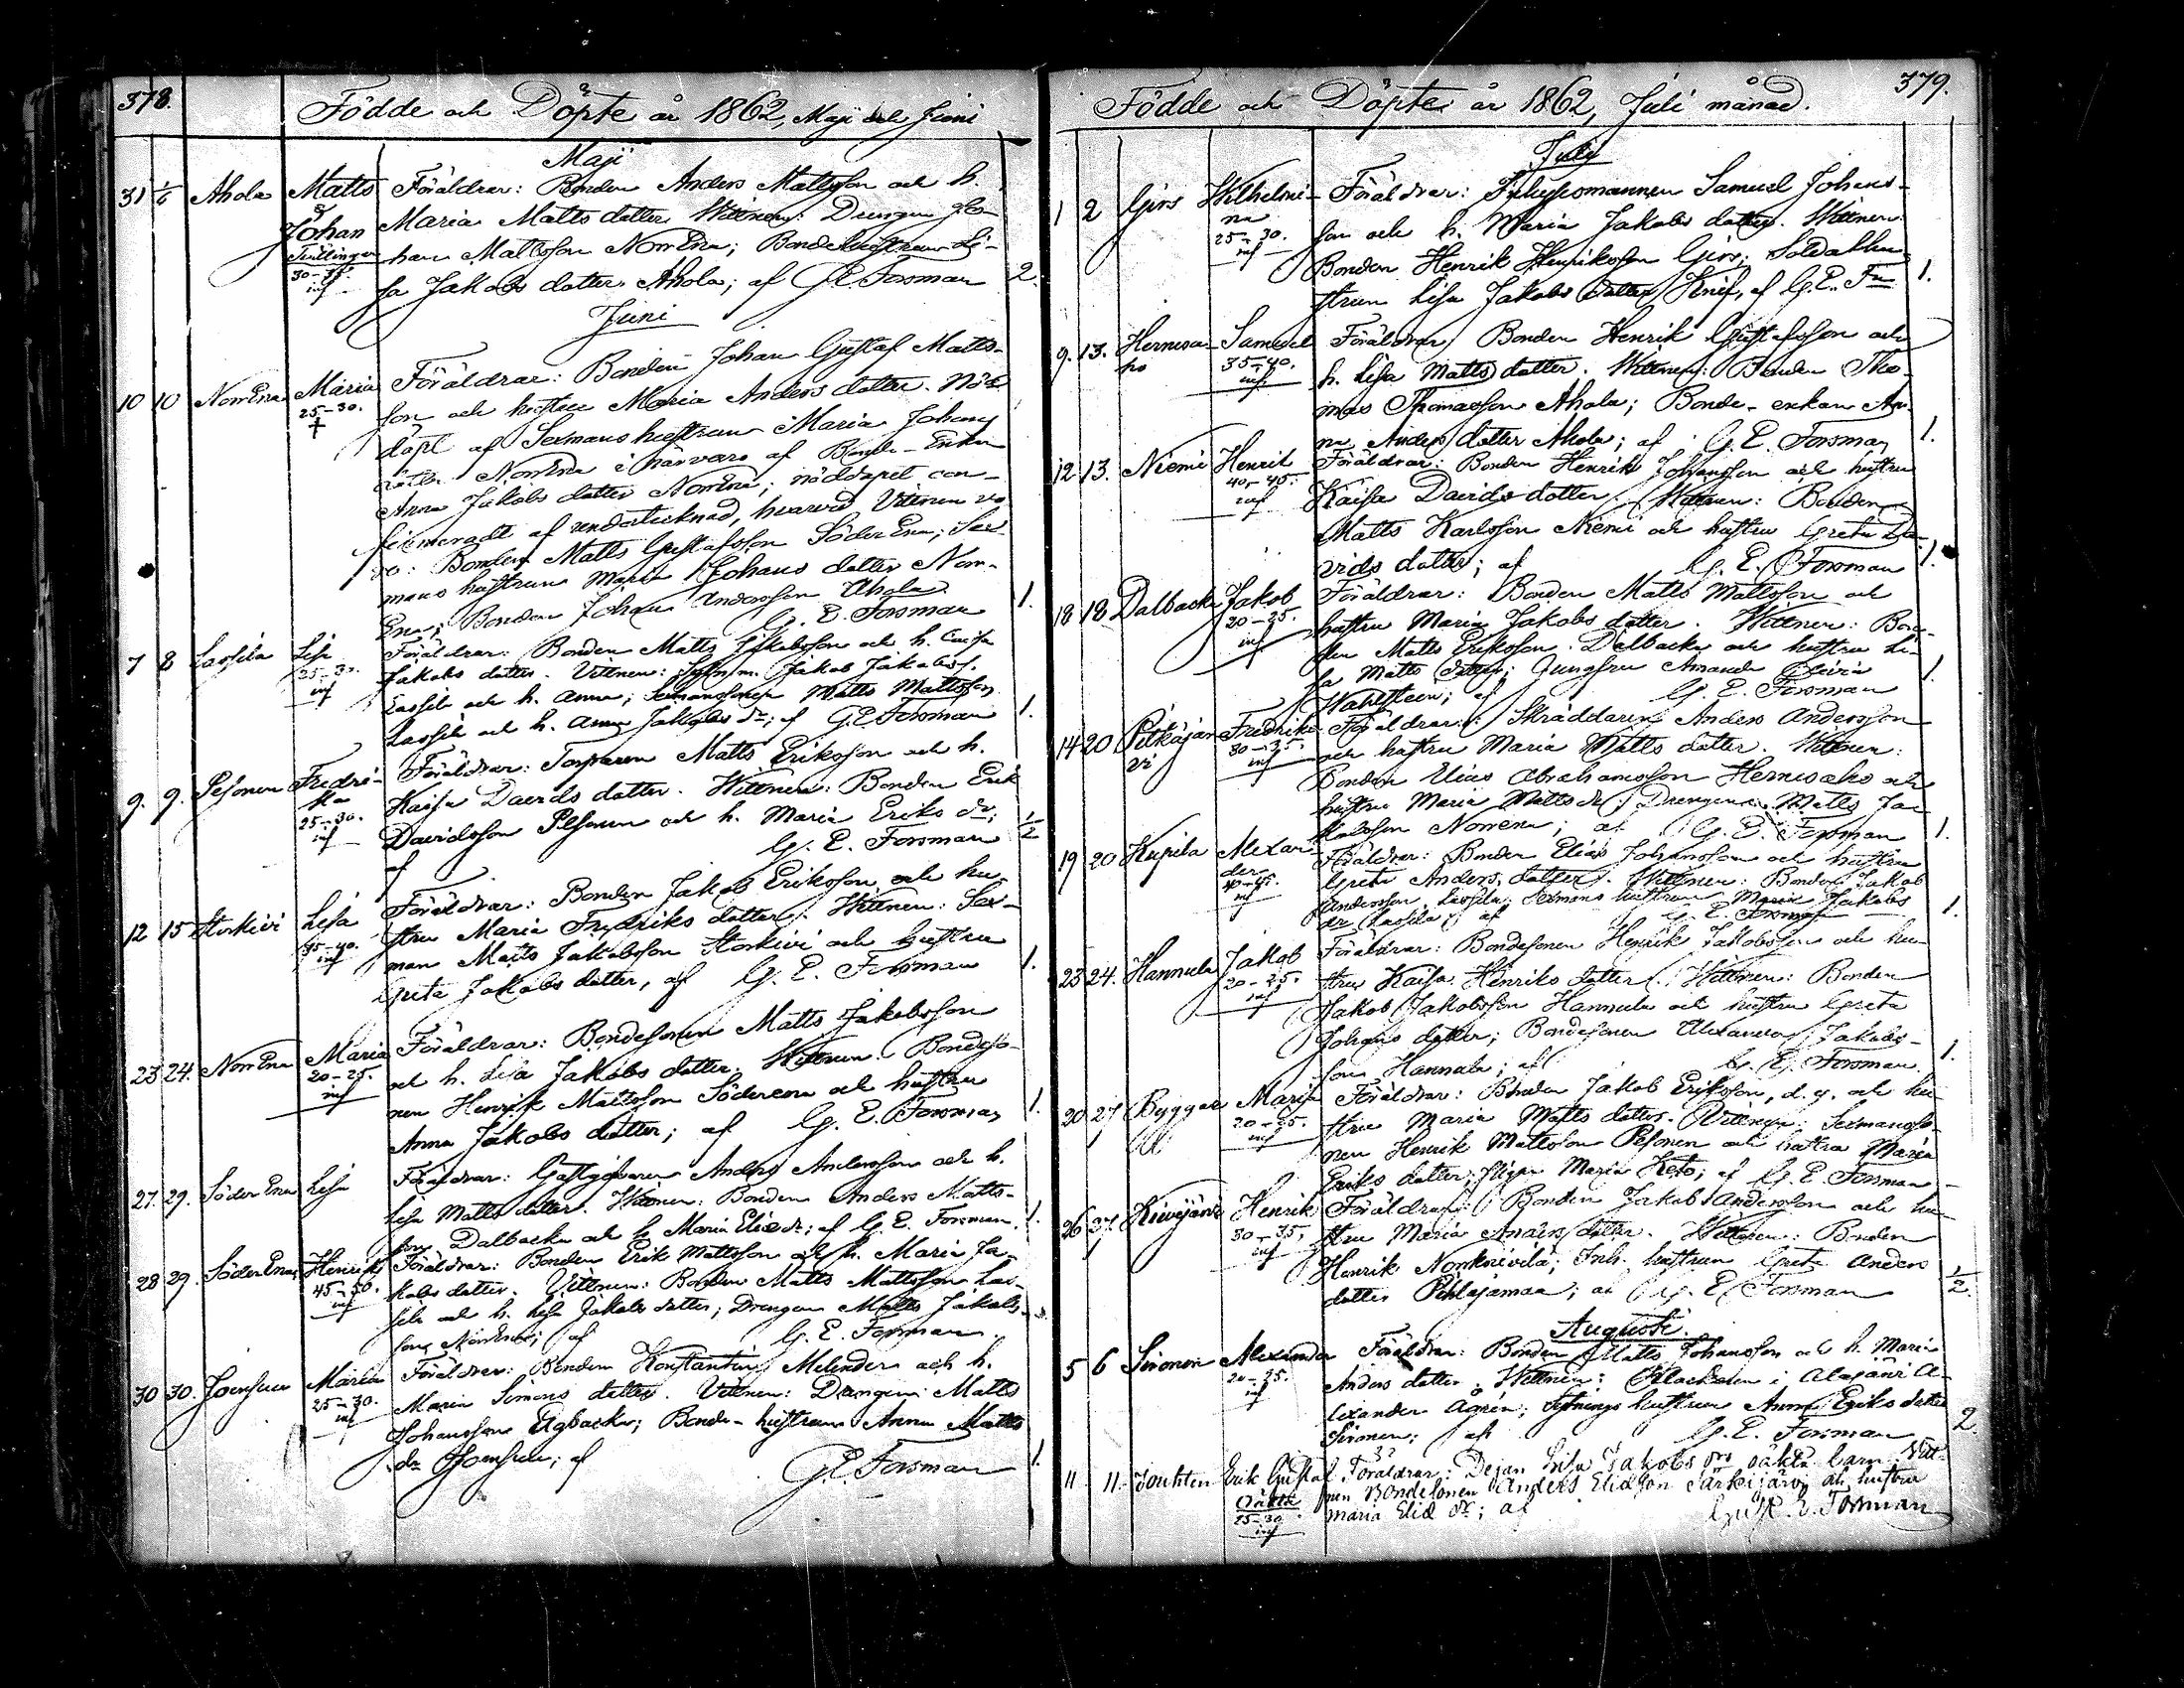 378.
Födde och Döpte år 1862, Maji och Juni
Maji
31 1/6 Ahola Matts & Johan Tvillingar 30-35. inf
Föräldrar: Bonden Anders Mattsson och h.
Maria Matts dotter. Vittnen: Drengen Jo-
han Mattsson NorrEna; Bondehustrun Li-
sa Jakobs dotter Ahola; af G E Forsman 2.
Juni
10 10 NorrEna Maria 25-30. †
Föräldrar: Bonden Johan Gustaf Matts-
son och hustru Maria Anders dotter. Nöd-
döpt af Sexmans hustrun Maria Johans
dotter NorrEna i närvaro af Bonde-Enkan
Anna Jakobs dotter NorrEna; nöddopet con-
firmeradt af undertecknad, hvarvid Vittnen vo-
ro: Bonden Matts Gustafsson SöderEna; Sex-
mans hustrun Maria Johans dotter Norr-
Ena; Bonden Johan Andersson Ahola
G. E. Forsman 1.
7 8 Lassila Lisa 25-30. inf
Föräldrar: Bonden Matts Jakobsson och h. Caisa
Jakobs dotter. Vittnen: Jakob Jakobss.
Lassila och h. Anna; Sexmanssonen Matts Mattsson
Lassila och h. Anna Jakobs dr; af G. E. Forsman 1.
9. 9. Pesonen Fredri-
ka 25-30. inf
Föräldrar: Torparen Matts Eriksson och h.
Kaisa Davids dotter. Vittnen: Bonden Erik
Davidsson Pesonen och h. Maria Eriks dr; 1/2
af G. E. Forsman
12 15 Storkivi Lisa 35-40. inf
Föräldrar: Bonden Jakob Eriksson och hu-
stru Maria Fredriks dotter. Vittnen: Sex-
man Matts Jakobsson Storkivi och hustru
Greta Jakobs dotter, af G. E. Forsman 1.
23 24. NorrEna Maria 20-25. inf
Föräldrar: Bondesonen Matts Jakobsson
och h. Lisa Jakobs dotter. Vittnen: Bondeso-
nen Henrik Mattsson Söderena och hustru
Anna Jakobs dotter; af G. E. Forsman 1.
27. 29. SöderEna Lisa
Föräldrar: Gästgifvaren Anders Andersson och h.
Lisa Matts dotter. Vittnen: Bonden Anders Matts-
son Dalbacka och h. Maria Eliæ dr; af G. E. Forsman. 1.
28 29. SöderEna Henrik 45-50. inf
Föräldrar: Bonden Erik Mattsson och h. Maria Ja-
kobs dotter. Vittnen: Bonden Matts Mattsson Las-
sila och h. Lisa Jakobs dotter; Drengen Matts Jakobs-
son NorrEna; af G. E. Forsman
30 30. Joensuu Maria 25-30. inf
Föräldrar: Bonden Konstantin Melender och h.
Maria Simons dotter. Vittnen: Drengen Matts
Johansson Elgbacka; Bonde-hustrun Anna Matts
dr Joensuu; af G. E. Forsman 1.
379.
Födde och Döpte år 1862, Juli månad.
July
1 2 Girs Wilhelmi-
na 25-30. inf
Föräldrar: Samuel Johans-
son och h. Maria Jakobs dotter. Vittnen:
Bonden Henrik Henriksson Girs; Soldathu-
strun Lisa Jakobs dotter Knif, af G. E. Fn 1.
9. 13. Hernesa-
ho Samuel 35-40. inf
Föräldrar Bonden Henrik Gustafsson och
h. Lisa Matts dotter. Vittnen: Bonden Tho-
mas Thomasson Ahola; Bonde-enkan An-
na Anders dotter Ahola; af G. E. Forsman 1.
12 13. Niemi Henrik 40-45. inf
Föräldrar: Bonden Henrik Johansson och hustru
Kaisa Davids dotter. Vittnen: Bonden
Matts Karlsson Niemi och hustru Greta Da-
vids dotter; af G. E. Forsman 1.
18 18 Dalbacka Jakob 20-25. inf
Föräldrar: Bonden Matts Mattsson och
hustru Maria Jakobs dotter. Vittnen: Bon-
den Matts Eriksson Dalbacka och hustru Li-
sa Matts dotter; Jungfru Amanda
Wahlsteen; af G. E. Forsman 1.
14 20 Pitkäjär-
vi Fredrika 30-35. inf
Föräldrar: Skräddaren Anders Andersson
och hustru Maria Matts dotter. Vittnen:
Bonden Elias Abrahamsson Hernesaho och
hustru Maria Matts dr; Drengen Matts Ja-
kobsson Norrena; af G. E. Forsman 1.
19 20 Kujala Alexan-
der 40-45. inf
Föräldrar: Bonden Elias Johansson och hustru
Greta Anders dotter. Vittnen: Bonden Jakob
Andersson Lassila; Sexmans hustrun Maria Jakobs
dr Lassila; af G. E. Forsman 1.
23 24. Hannula Jakob 20-25. inf
Föräldrar: Bondesonen Henrik Jakobsson och hu-
stru Kaisa Henriks dotter. Vittnen: Bonden
Jakob Jakobsson Hannula och hustru Greta
Johans dotter; Bondesonen Alexander Jakobs-
son Hannula; af G. E. Forsman 1.
20 27 Byggar Maria 20-25. inf
Föräldrar: Bonden Jakob Eriksson, d. y. och hu-
stru Maria Matts dotter. Vittnen: Sexmansso-
nen Henrik Mattsson Pesonen och hustru Maria
Eriks dotter; pigan Maria Keto; af G. E. Forsman
26 27. Kivijärvi Henrik 30-35. inf
Föräldrar: Bonden Jakob Andersson och hu-
stru Maria Anders dotter. Vittnen: Bonden
Henrik Norrknivilä; Inh. hustrun Greta Anders
dotter Pihlajamaa; af G. E. Forsman 1/2.
Augusti.
5 6 Sironen Alexander 20-25. inf
Föräldrar: Bonden Matts Johansson och h. Maria
Anders dotter. Vittnen: Klockaren i Alajärvi A-
lexander Agrén; hustrun Anna Eriks dotter
Sironen; af G. E. Forsman 2.
11 11. Jouhten Erik Gustaf Oäkta 25-30 inf
Föräldrar: Dejan Lisa Jakobs drs oäkta barn. Vitt-
nen Bondesonen Anders Eliasson Särkijärvi och hustru
Maria Eliæ dr; af Gust. E. Forsman